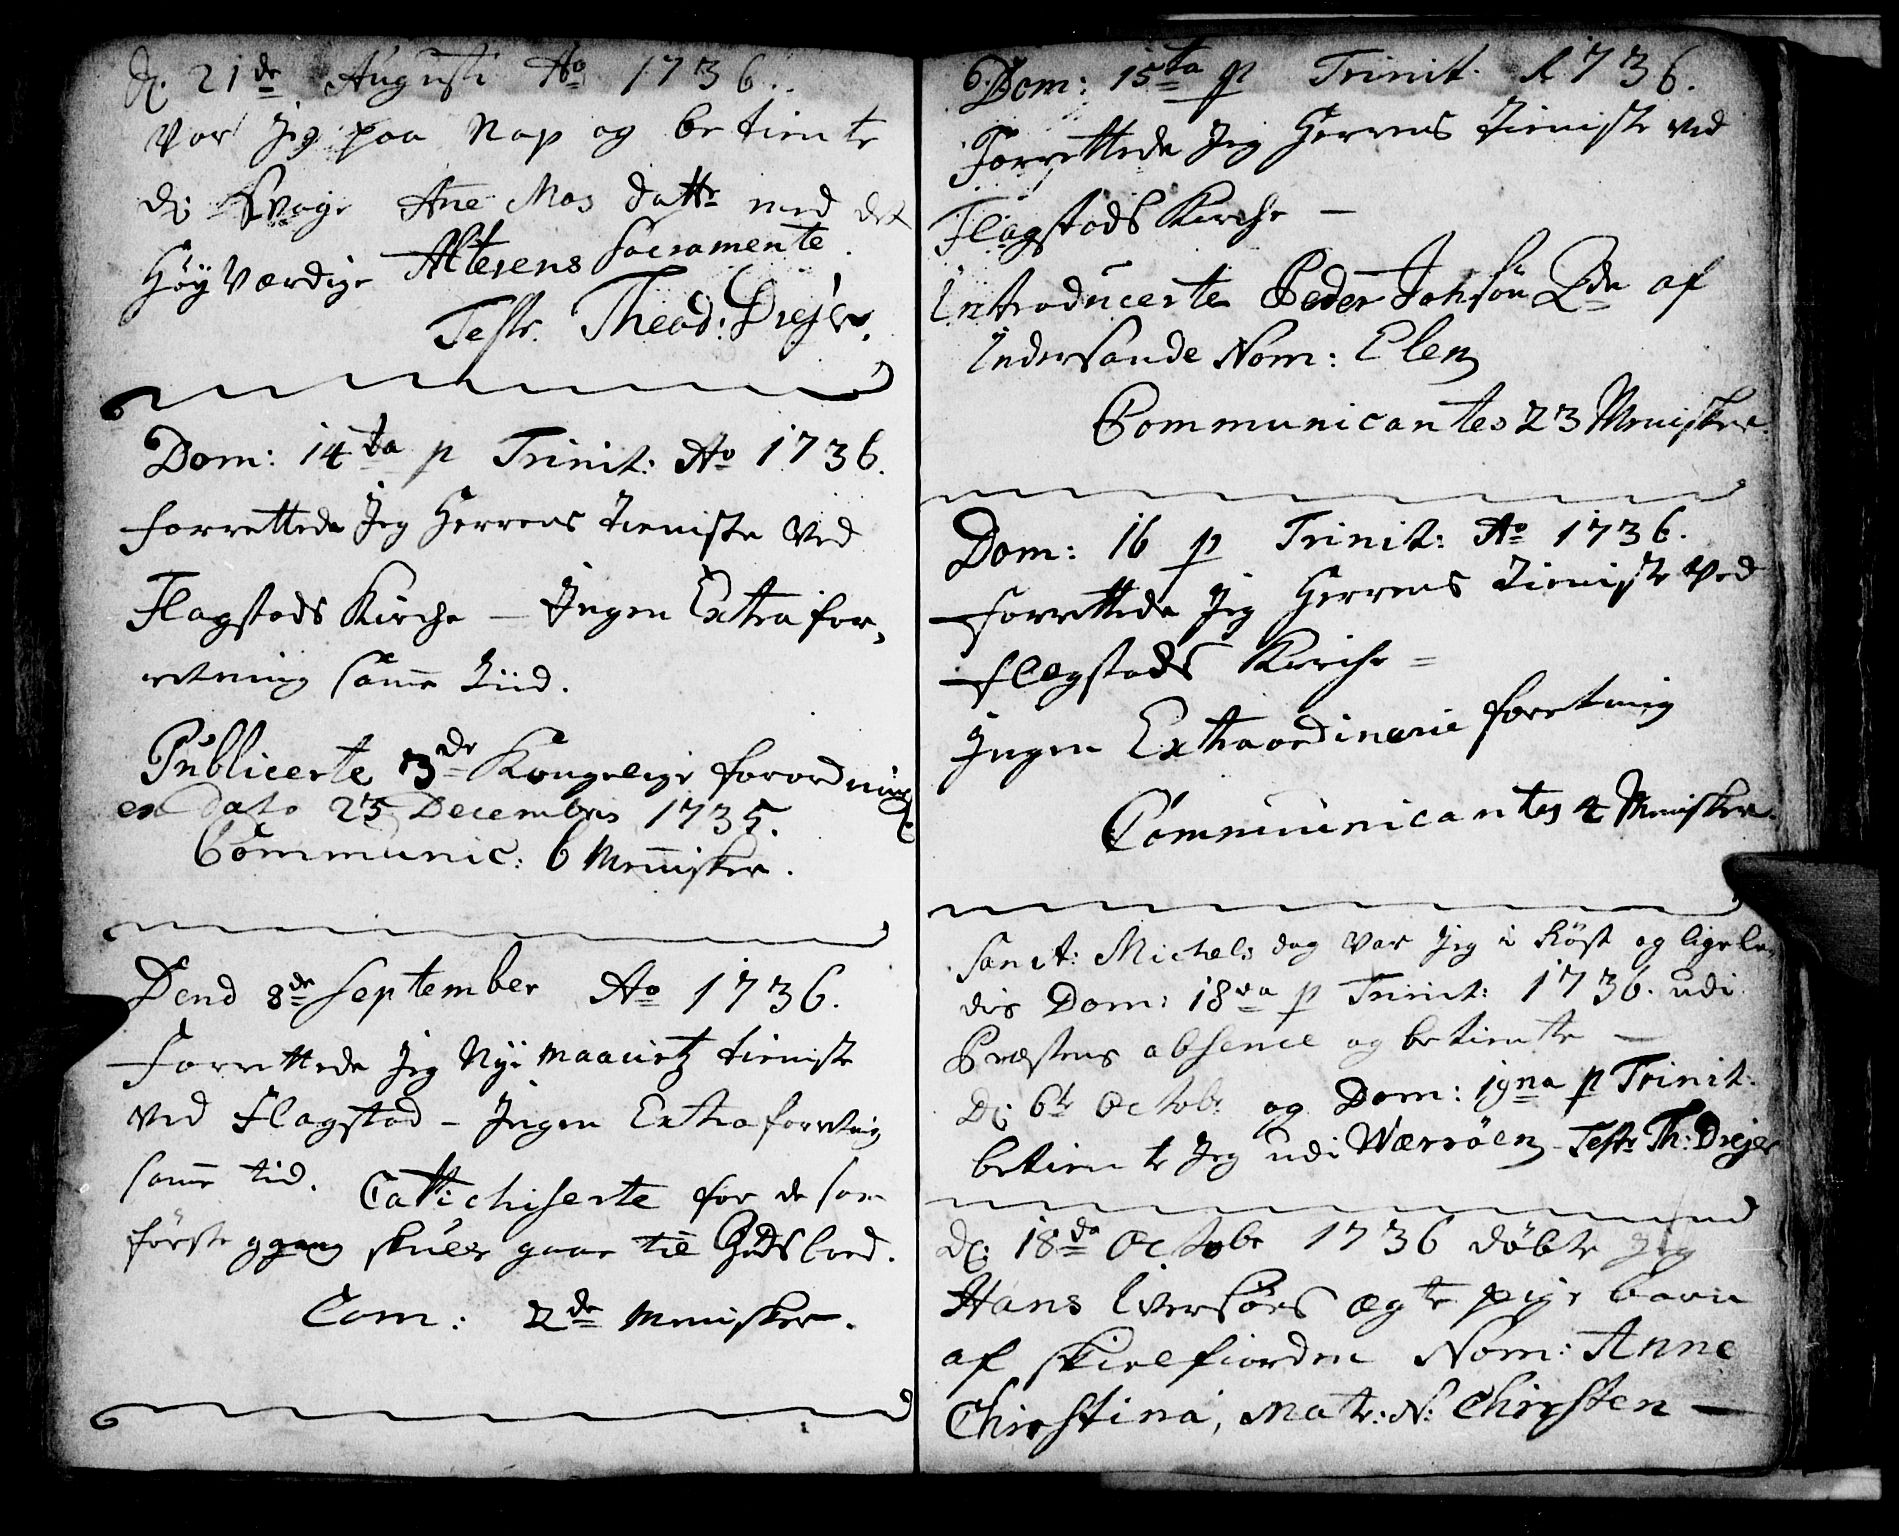 d. 21de Augusti Ao 1736.
Var Jeg paa Nap og betiente
di Svage Ane Mos datt: med det
Høy Værdige Alterens Sacramente.
Teste. Theod: Drejer.
Dom: 14ta p Trinit: Ao 1736.
forrettede Jeg Herrens tieniste ved
Flagstads Kirche – Ingen Extra for,
retning same tiid.
Publicerte 3de Kongelige forordning
en dato 23 Decembris 1735.
Communic: 6 Meniskr.
Dend 8de September Ao 1736.
forrettede Jeg Nye maanetz tieniste
ved Flagstad – Ingen Extra forretnig
same tid. Cattichiserte for de som
første ggang skuls gaae til Guds bord.
Com: 2de Menisker.
Dom: 15ta p Trinit. A 1736.
Forrettede Jeg Herrens tieniste ved
Flagstads Kirche –
Introducerte Peder Johsøn Qde af
Indersande Nom: Elen
Communicantes 23 Menisker.
Dom: 16 p Trinit: Ao 1736.
forrettede Jeg Herrens tieniste ved
flagstads Kirche =
Ingen Extraordinarie forretning
Communicantes 4 Menisker.
Sanct: Michels dag var Jeg i Røst og ligele,
dis Dom: 18va p Trinit: 1736. udi
Præstens absence og betiente –
D: 6te Octobr og Dom: 19na p Trinit:
betiente Jeg udi Wærrøen – Teste Th: Drejer
d: 18de Octobr 1736 døbte Jeg
Hans Iversøns ægte pige barn
af skielfiorden Nom: Anne
Chirstina, Matr: N: Chirsten –